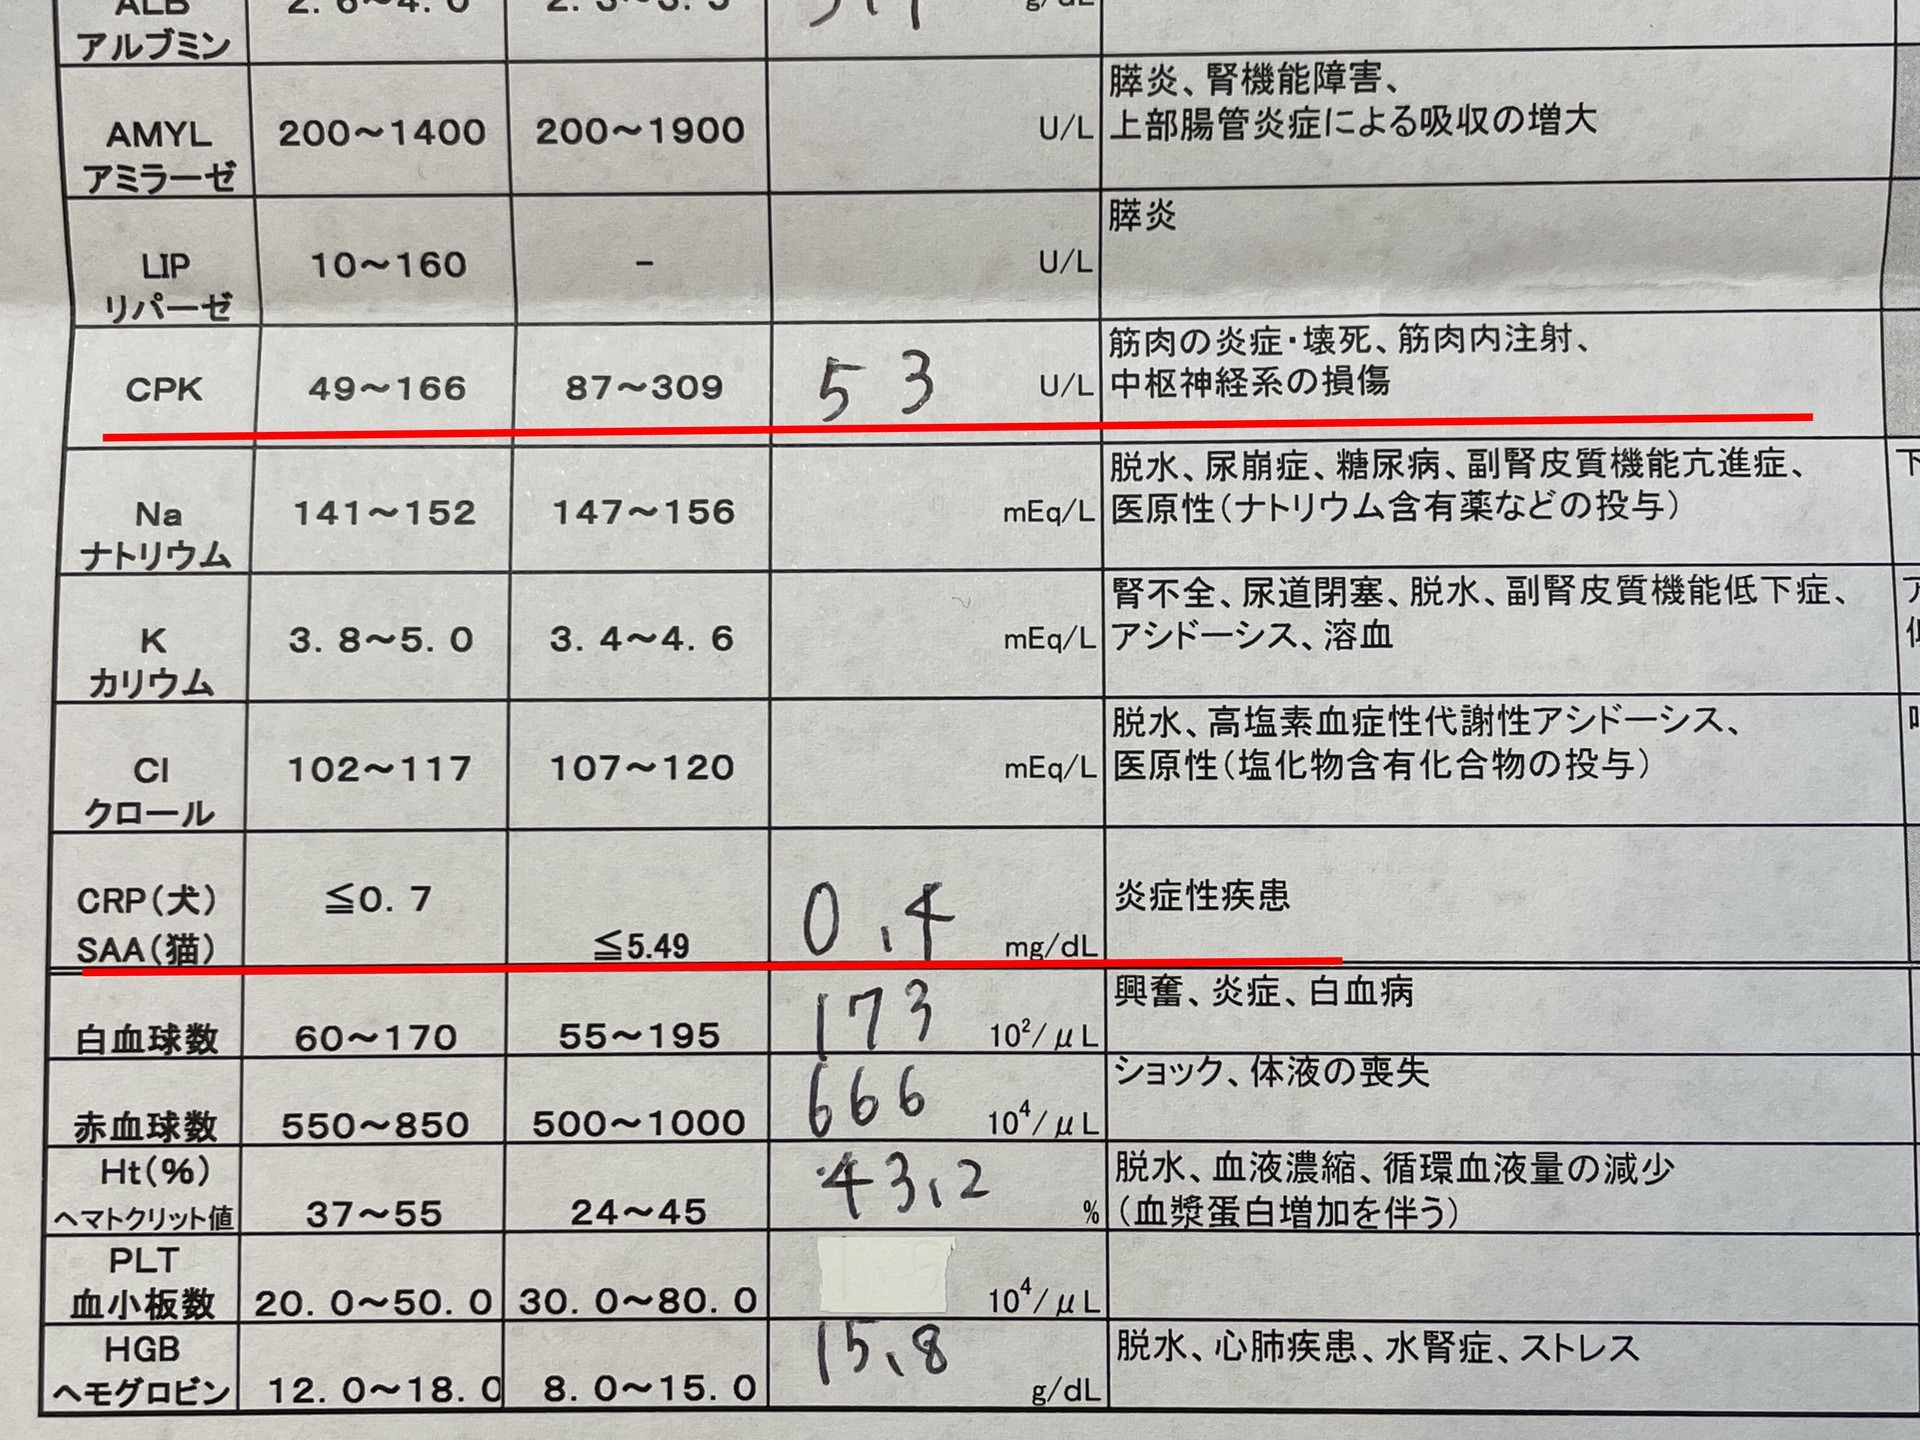 ALB 2.6～4.0 2.3～3.5 g/dL
アルブミン
膵炎、腎機能障害、
AMYL 200～1400 200～1900 U/L 上部腸管炎症による吸収の増大
アミラーゼ
膵炎
LIP 10～160 - U/L
リパーゼ
筋肉の炎症・壊死、筋肉内注射、
CPK 49～166 87～309 53 U/L 中枢神経系の損傷
脱水、尿崩症、糖尿病、副腎皮質機能亢進症、
Na 141～152 147～156 mEq/L 医原性(ナトリウム含有薬などの投与)
ナトリウム
腎不全、尿道閉塞、脱水、副腎皮質機能低下症、
K 3.8～5.0 3.4～4.6 mEq/L アシドーシス、溶血
カリウム
脱水、高塩素血症性代謝性アシドーシス、
Cl 102～117 107～120 mEq/L 医原性(塩化物含有化合物の投与)
クロール
CRP(犬) ≦0.7 0.4 炎症性疾患
SAA(猫) ≦5.49 mg/dL
興奮、炎症、白血病
白血球数 60～170 55～195 173 10²/μL
ショック、体液の喪失
赤血球数 550～850 500～1000 666 10⁴/μL
Ht(%) 43.2 脱水、血液濃縮、循環血液量の減少
ヘマトクリット値 37～55 24～45 % (血漿蛋白増加を伴う)
PLT
血小板数 20.0～50.0 30.0～80.0 10⁴/μL
HGB 15.8 脱水、心肺疾患、水腎症、ストレス
ヘモグロビン 12.0～18.0 8.0～15.0 g/dL